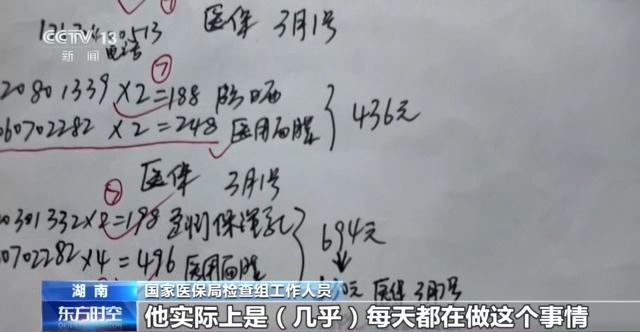 CCTV 13
新闻
513
电话
医保 3月1号
⑦
20801339 ×2=188 防晒
060702282 ×2=248 医用面膜
436元
医保 3月1号
0301332×2=198
保湿乳
0702282×4=496 医用面膜
694元
元 医保 3月7号
湖南
国家医保局检查组工作人员
东方时空
他实际上是（几乎）每天都在做这个事情